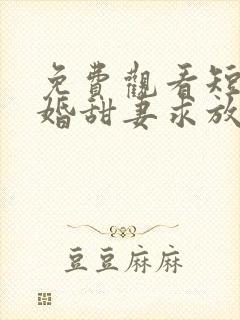 免費觀看短
婚甜妻求放
豆豆麻麻